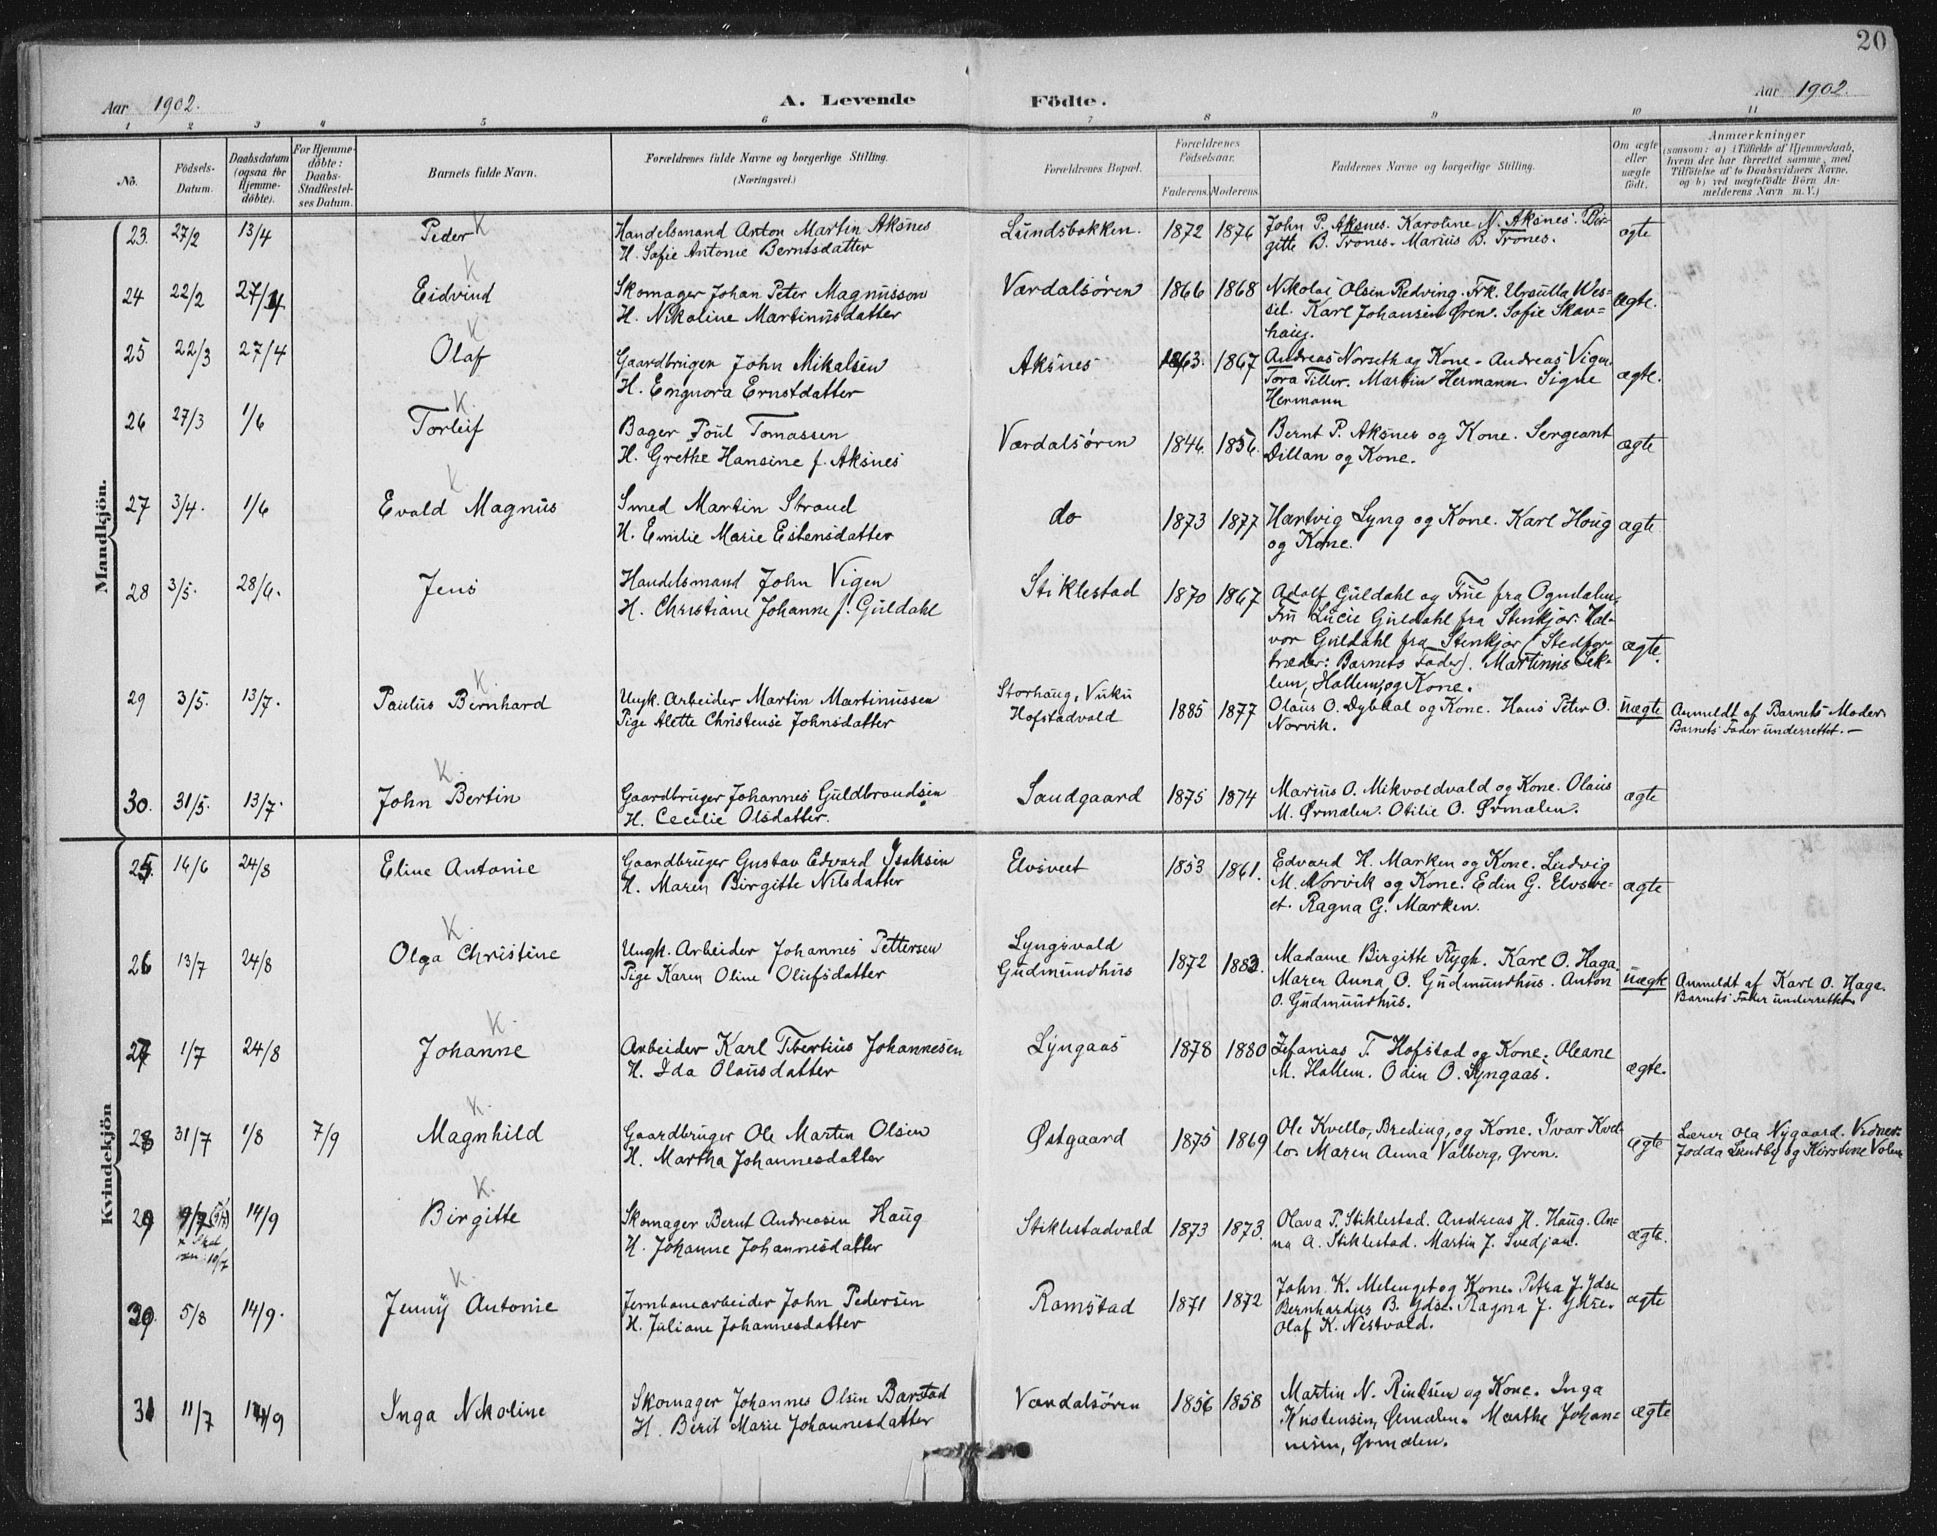 20
Aar 1902.
A. Levende
Födte.
Aar 1902.
1 2 3 4 5 6 7 8 9 10 11
No.
Födsels-
Datum.
Daabsdatum
(ogsaa for
Hjemme-
döbte).
For Hjemme-
döbte:
Daabs-
Stadfæstel-
ses Datum.
Barnets fulde Navn.
Forældrenes fulde Navne og borgerlige Stilling.
(Næringsvei.)
Forældrenes Bopæl.
Forældrenes
Födselsaar.
Faderens. Moderens.
Faddernes Navne og borgerlige Stilling.
Om ægte
eller
uægte
født.
Anmærkninger
(saasom: a) i Tilfælde af Hjemmedaab,
hvem der har forrettet samme, med
Tilföielse af to Daabsvidners Navne,
og b) ved uægtefödte Börn An-
melderens Navn m. V.)
Mandkjön.
23. 27/2 13/4 Peder K
Handelsmand Anton Martin Aksnes
H. Sofie Antonie Berntsdatter
Lundsbakken. 1872 1876
John P. Aksnes. Karoline N. Aksnes. Bir-
gitte B. Trones. Marius B. Trones.
ægte
24 22/2 27/4 K Eidvind
Skomager Johan Peter Magnusson
H. Nikoline Martinusdatter
Værdalsøren 1866 1868
Nikolai Olsen Redving. Frk. Ursulla Wes-
sel. Karl Johansen Øren. Sofie Skav-
haug.
ægte.
25 22/3 27/4 K Olaf
Gaardbruger John Mikalsen
H. Engnora Ernstdatter
Aksnes 1863. 1867
Andreas Norseth og Kone. Andreas Vigen
Tora Tiller. Martin Hermann. Signe
Hermann
ægte.
26 27/3 1/6 K. Torleif
Bager Poul Tomassen
H. Grethe Hansine f. Aksnes
Værdalsøren 1846. 1856.
Bernt P. Aksnes og Kone. Sergeant
Dillan og Kone.
ægte
27 3/4. 1/6 K Evald Magnus
Smed Martin Strand
H. Emilie Marie Estensdatter
do 1873 1877
Hartvig Lyng og Kone. Karl Houg
og Kone.
ægte
28 3/5. 28/6. Jens
Handelsmand John Vigen
H. Christiane Johanne f. Guldahl
Stiklestad 1870 1867
Adolf Guldahl og Frue fra Ogndalen,
Fru Lucie Guldahl fra Stenkjær. Hal-
vor Guldahl fra Stenkjær (Stedfor-
træder: Barnets Fader). Martinus Lek-
lem, Hallem, og Kone.
ægte.
29 3/5. 13/7. K. Paulus Bernhard
Ungk. Arbeider Martin Martinussen
Pige Alette Christense Johnsdatter
Storhaug, Vuku
Hofstadvald
1885 1877
Olaus O. Dybdal og Kone. Hans Peter O.
Norvik.
uægte
Anmeldt af Barnets Moder.
Barnets Fader underrettet. —
30. 31/5. 13/7. K. John Bertin
Gaardbruger Johannes Guldbrandsen
H. Cecilie Olsdatter.
Sandgaard 1875 1874
Marius O. Mikvoldvald og Kone. Olaus
M. Ørmælen. Otilie O. Ørmælen.
ægte
Kvindekjön
25. 16/6 24/8 Eline Antonie
Gaardbruger Gustav Edvard Isaksen
H. Maren Birgitte Nilsdatter
Elvsveet 1853 1861.
Edvard H. Marken og Kone. Ludvig
M. Norvik og Kone. Edin G. Elvsve-
et. Ragna G. Marken.
ægte
26 13/7 24/8 K. Olga Christine
Ungk. Arbeider Johannes Pettersen
Pige Karen Oline Olufsdatter
Lyngsvald
Gudmundhus
1872 1882.
Madame Birgitte Rygh. Karl O. Haga.
Maren Anna O. Gudmundhus. Anton
O. Gudmundhus.
uægte
Anmeldt af Karl O. Haga.
Barnets Fader underrettet.
27 1/7 24/8 K. Johanne
Arbeider Karl Tibertius Johannesen
H. Ida Olausdatter
Lyngaas 1878 1880
Zefanias T. Hofstad og Kone. Oleane
M. Hallem. Odin O. Lyngaas.
ægte.
28 31/7 1/8 7/9 K. Magnhild
Gaardbruger Ole Martin Olsen
H. Martha Johannesdatter
Østgaard 1875 1869
Ole Kvello, Breding, og Kone. Ivar Kvel-
lo. Maren Anna Valberg, Øren.
ægte
Lærer Ola Nygaard. Vidner:
Jodda Lundby og Kirstine Volen
29 9/7 14/9 K. Birgitte
Skomager Bernt Andreasen Haug
H. Johanne Johannesdatter
Stiklestadvald 1873 1873.
Olava P. Stiklestad. Andreas H. Haug. An-
na A. Stiklestad. Martin J. Svedjan.
ægte.
30. 5/8 14/9. K. Jenny Antonie
Jernbanearbeider John Pedersen
H. Juliane Johannesdatter
Ramstad 1871 1872
John K. Melenget og Kone. Petra J. Ydse
Bernhardus B. Ydse. Ragna J. Ydse.
Olaf K. Nestvold.
ægte
31 11/7 14/9 Inga Nikoline
Skomager Johannes Olsen Barstad
H. Berit Marie Johannesdatter
Værdalsøren 1856 1858
Martin N. Rindsem og Kone. Inga
Kristensen, Ørmælen. Marthe Johan-
nesen, Ørmælen.
ægte